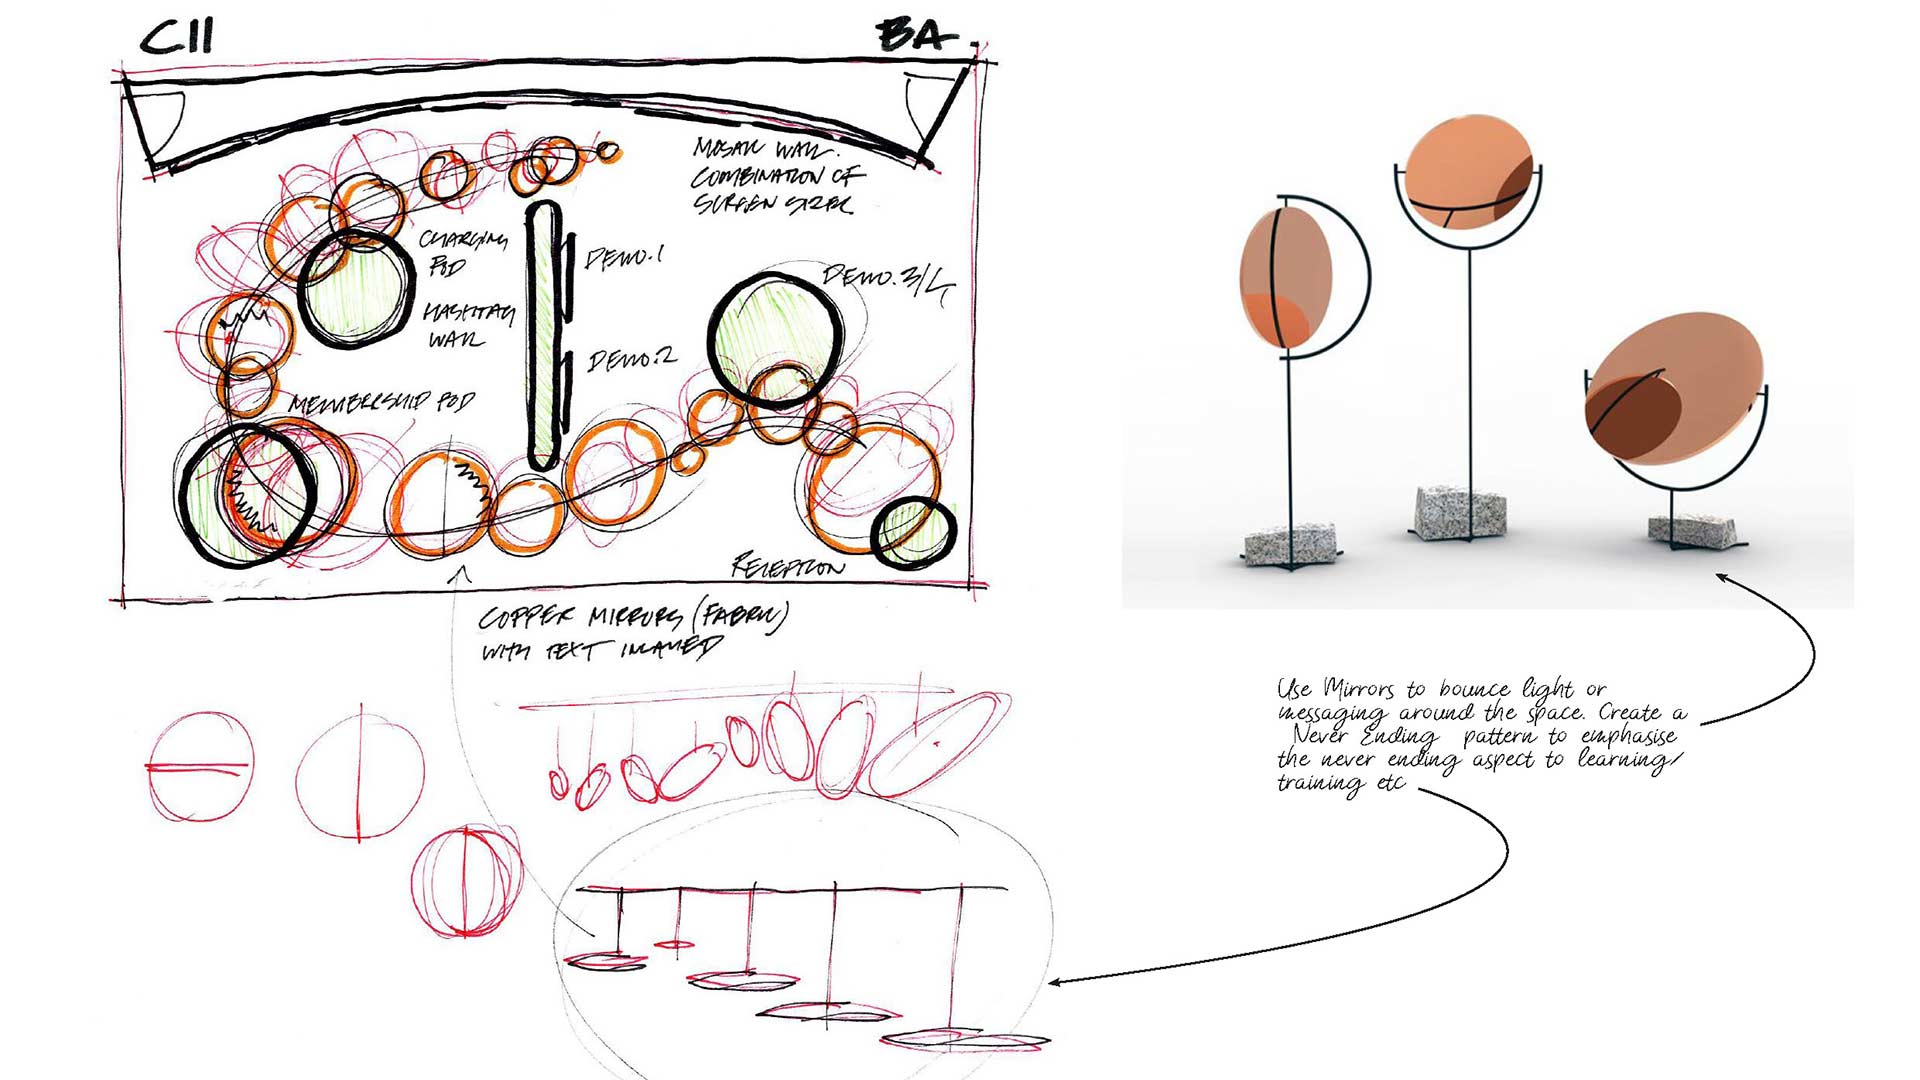 CII
BA.
MOSAIC WALL.
COMBINATION OF
SCREEN SIZES
CHARGING
POD
HASHTAG
WALL
DEMO.1
DEMO.2
DEMO.3/4
MEMBERSHIP POD
RECEPTION
COPPER MIRRORS (FABRIC)
WITH TEXT INLAYED
Use Mirrors to bounce light or
messaging around the space. Create a
Never Ending pattern to emphasise
the never ending aspect to learning/
training etc